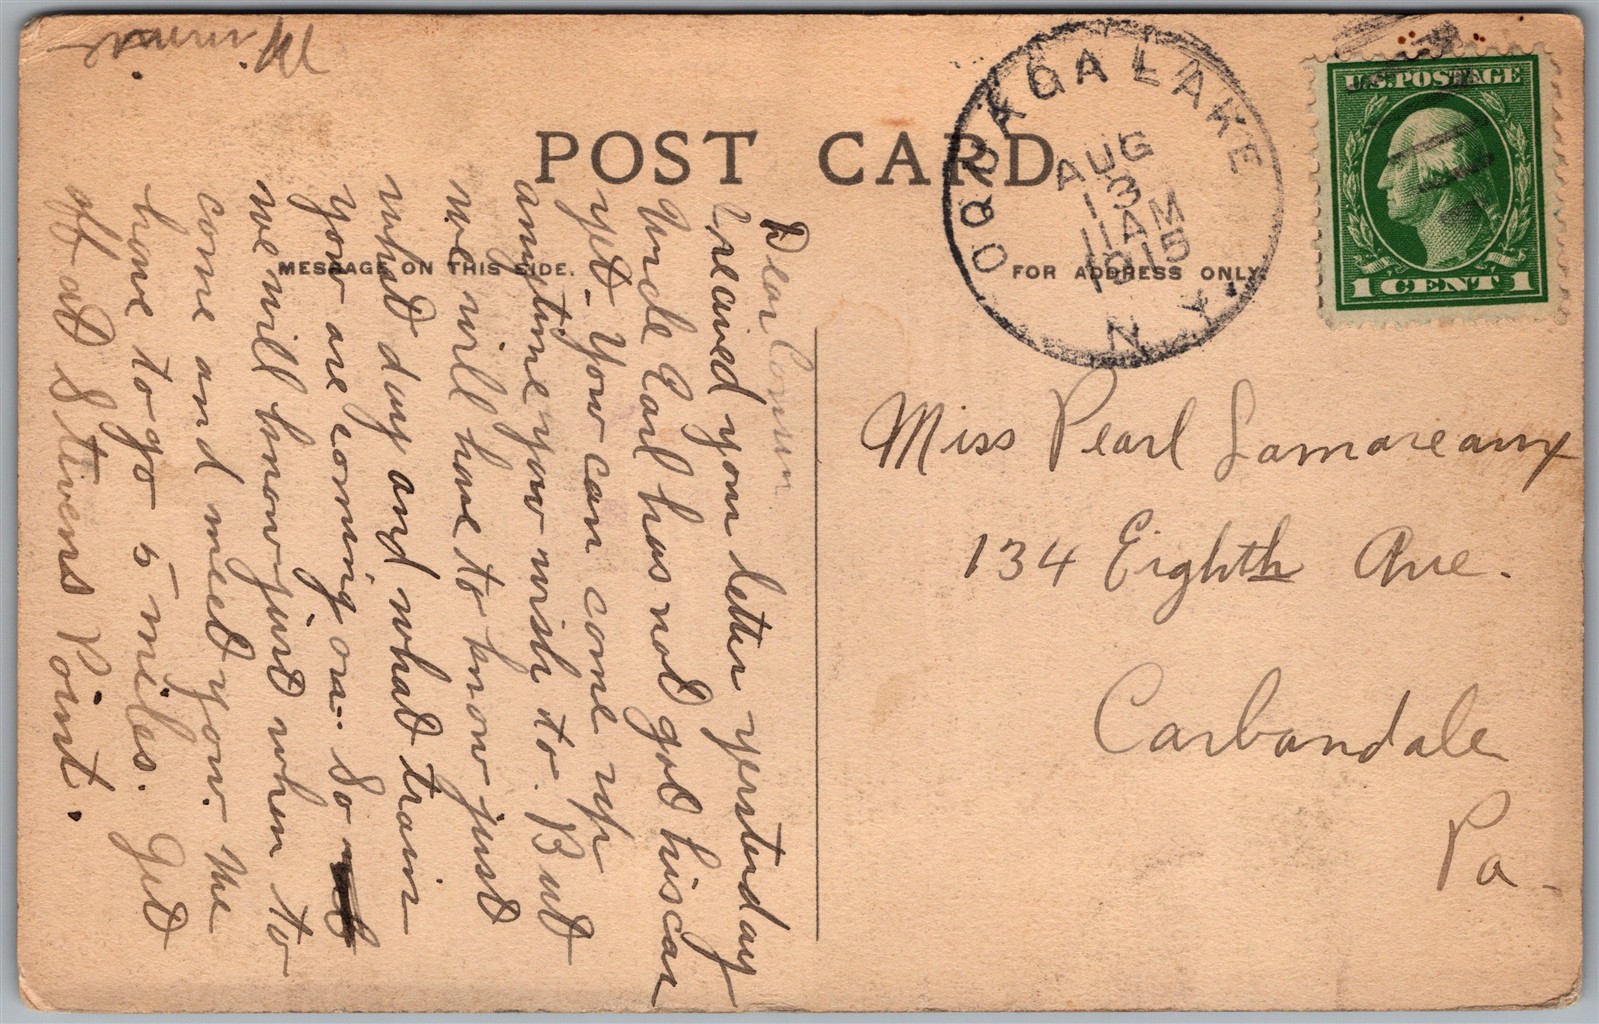 POST CARD
MESSAGE ON THIS SIDE.
FOR ADDRESS ONLY.
OQUAGA LAKE
AUG
13
11 AM
1915
N.Y.
U.S. POSTAGE
1 CENT 1
Dear Cousin
I recieved your letter yesterday
Uncle Earl has not got his car
yet - You can come up
anytime you wish to. But
we will have to know just
what day and what train
you are coming on. So
we will know just when to
come and meet you. We
have to go 5 miles. Get
off at Stivens Point.
Minnie.
Miss Pearl Lamoreaux
134 Eighth Ave.
Carbondale
Pa.